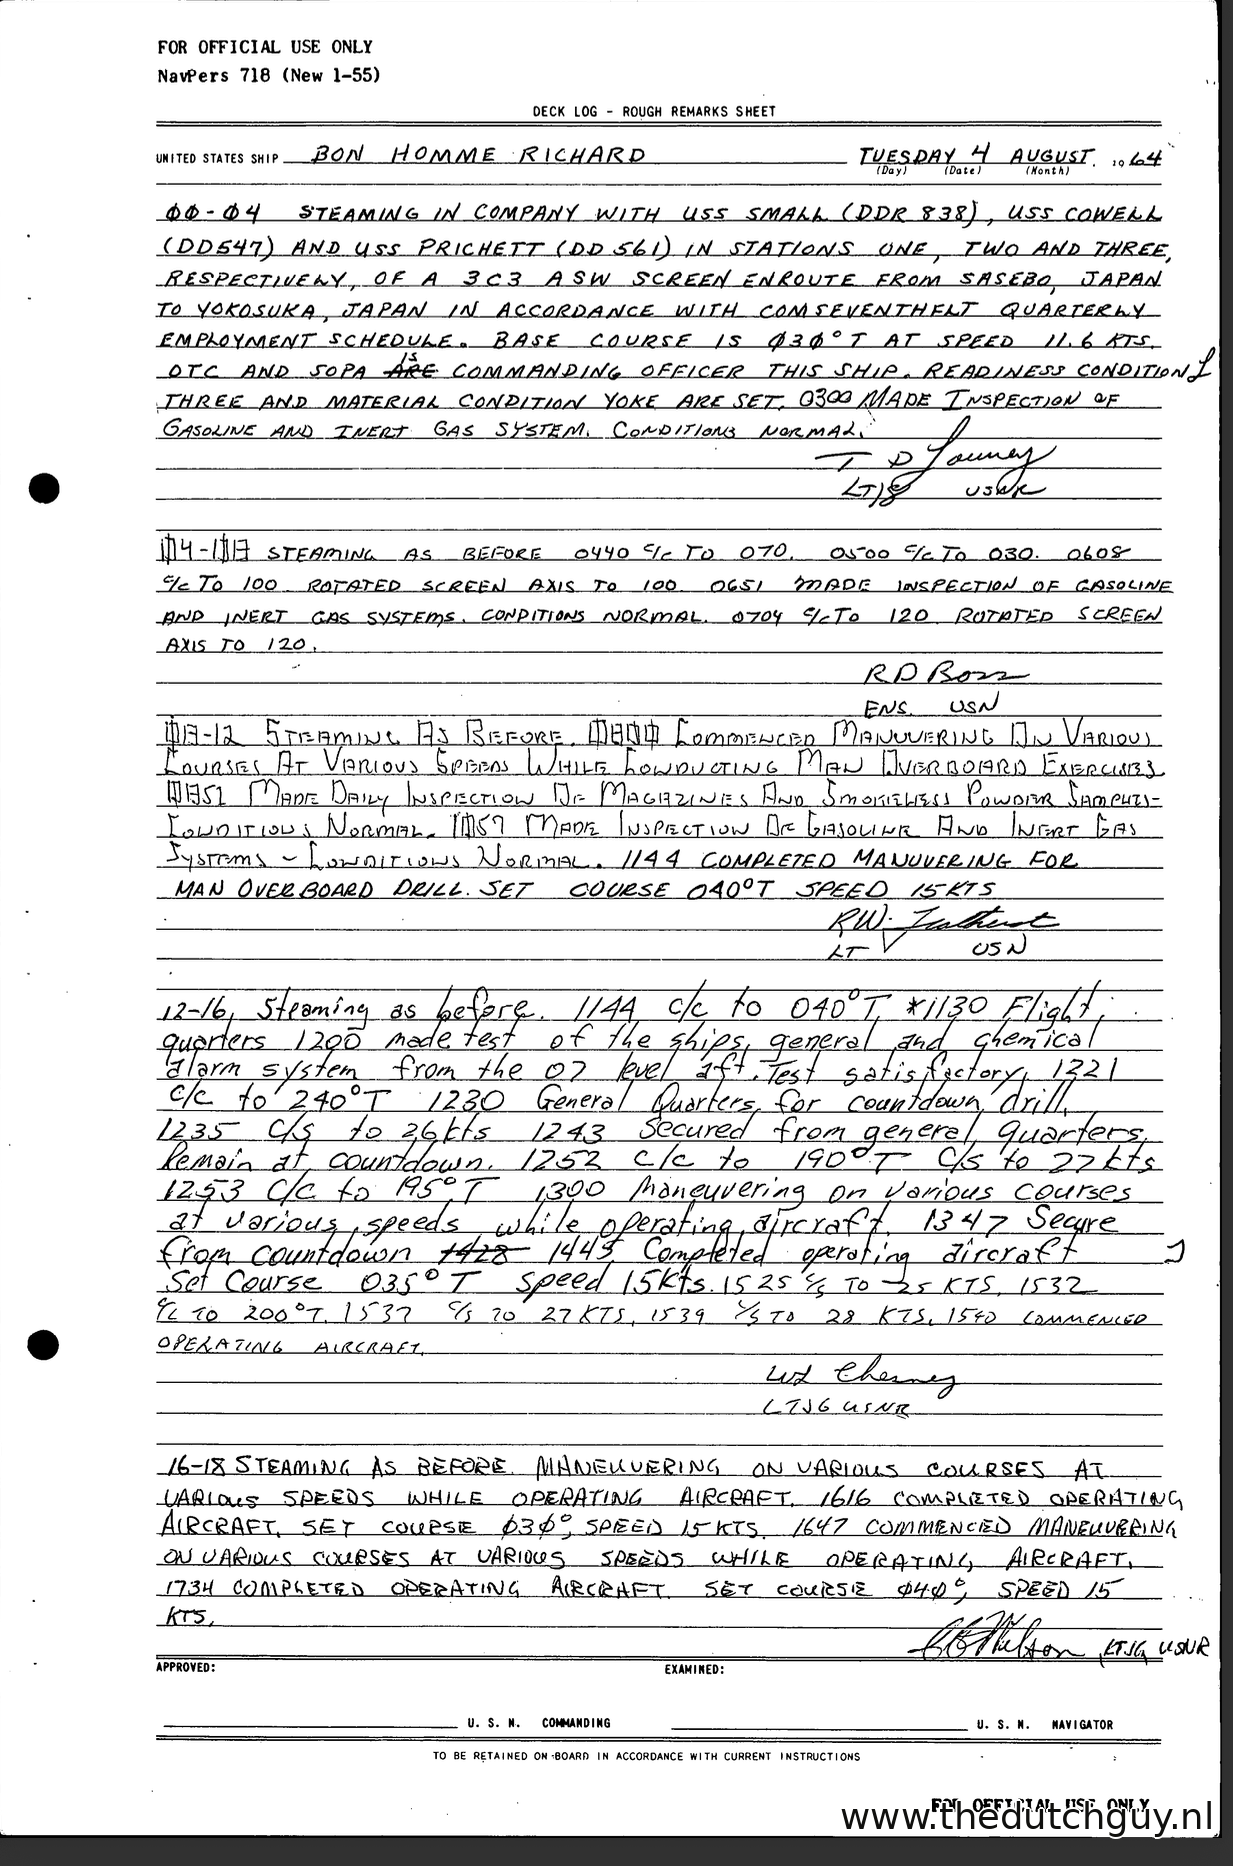 FOR OFFICIAL USE ONLY
NavPers 718 (New 1-55)
DECK LOG - ROUGH REMARKS SHEET
UNITED STATES SHIP BON HOMME RICHARD TUESDAY 4 AUGUST, 1964
(Day) (Date) (Month)
00-04 STEAMING IN COMPANY WITH USS SMALL (DDR 838), USS COWELL
(DD547) AND USS PRICHETT (DD 561) IN STATIONS ONE, TWO AND THREE,
RESPECTIVELY, OF A 3C3 ASW SCREEN ENROUTE FROM SASEBO, JAPAN
TO YOKOSUKA, JAPAN IN ACCORDANCE WITH COMSEVENTHFLT QUARTERLY
EMPLOYMENT SCHEDULE. BASE COURSE IS 030°T AT SPEED 11.6 KTS.
OTC AND SOPA ARE IS COMMANDING OFFICER THIS SHIP. READINESS CONDITION
THREE AND MATERIAL CONDITION YOKE ARE SET. 0300 MADE INSPECTION OF
GASOLINE AND INERT GAS SYSTEM. CONDITIONS NORMAL.
T D
LTJG USNR
04-08 STEAMING AS BEFORE 0440 C/C TO 070. 0500 C/C TO 030. 0608
C/C TO 100 ROTATED SCREEN AXIS TO 100 0651 MADE INSPECTION OF GASOLINE
AND INERT GAS SYSTEMS. CONDITIONS NORMAL. 0704 C/C TO 120 ROTATED SCREEN
AXIS TO 120.
R D
ENS. USN
08-12 STEAMING AS BEFORE. 0800 COMMENCED MANUVERING ON VARIOUS
COURSES AT VARIOUS SPEEDS WHILE CONDUCTING MAN OVERBOARD EXERCISES
0851 MADE DAILY INSPECTION OF MAGAZINES AND SMOKELESS POWDER SAMPLES-
CONDITIONS NORMAL. 1057 MADE INSPECTION OF GASOLINE AND INERT GAS
SYSTEMS - CONDITIONS NORMAL. 1144 COMPLETED MANUVERING FOR
MAN OVERBOARD DRILL. SET COURSE 040°T SPEED 15KTS
RW.
LT USN
12-16, Steaming as before. 1144 c/c to 040°T, *1130 Flight
quarters 1200 made test of the ships general and chemical
alarm system from the 07 level aft. Test satisfactory, 1221
C/C to 240°T 1230 General Quarters for countdown drill,
1235 C/S to 26kts 1243 Secured from general quarters,
Remain at countdown. 1252 c/c to 190°T C/S to 27kts
1253 C/C to 195°T 1300 Maneuvering on various courses
at various speeds while operating aircraft. 1347 Secure
from countdown 1428 1445 Completed operating aircraft
Set Course 035°T Speed 15kts. 1525 C/S TO 25 KTS, 1532
C/C TO 200°T. 1537 C/S TO 27 KTS, 1539 C/S TO 28 KTS, 1540 COMMENCED
OPERATING AIRCRAFT.
WL Chesney
LTJG USNR
16-18 STEAMING AS BEFORE. MANEUVERING ON VARIOUS COURSES AT
VARIOUS SPEEDS WHILE OPERATING AIRCRAFT. 1616 COMPLETED OPERATING
AIRCRAFT. SET COURSE 030°, SPEED 15 KTS. 1647 COMMENCED MANEUVERING
ON VARIOUS COURSES AT VARIOUS SPEEDS WHILE OPERATING AIRCRAFT.
1734 COMPLETED OPERATING AIRCRAFT. SET COURSE 040°, SPEED 15
KTS.
LTJG USNR
APPROVED: EXAMINED:
U. S. N. COMMANDING U. S. N. NAVIGATOR
TO BE RETAINED ON BOARD IN ACCORDANCE WITH CURRENT INSTRUCTIONS
FOR OFFICIAL USE ONLY
www.thedutchguy.nl